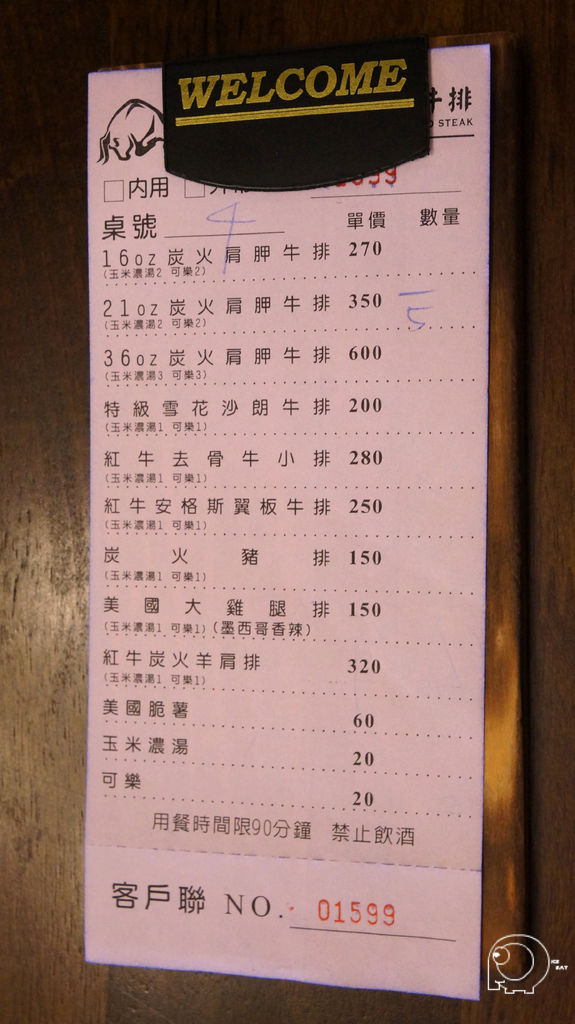 WELCOME
牛排
STEAK
□內用 □
桌號 4 單價 數量
16oz炭火肩胛牛排 270
(玉米濃湯2 可樂2)
21oz炭火肩胛牛排 350
(玉米濃湯2 可樂2)
36oz炭火肩胛牛排 600
(玉米濃湯3 可樂3)
特級雪花沙朗牛排 200
(玉米濃湯1 可樂1)
紅牛去骨牛小排 280
(玉米濃湯1 可樂1)
紅牛安格斯翼板牛排 250
(玉米濃湯1 可樂1)
炭火豬排 150
(玉米濃湯1 可樂1)
美國大雞腿排 150
(玉米濃湯1 可樂1)(墨西哥香辣)
紅牛炭火羊肩排 320
(玉米濃湯1 可樂1)
美國脆薯 60
玉米濃湯 20
可樂 20
用餐時間限90分鐘 禁止飲酒
客戶聯 NO. 01599
ICE
EAT